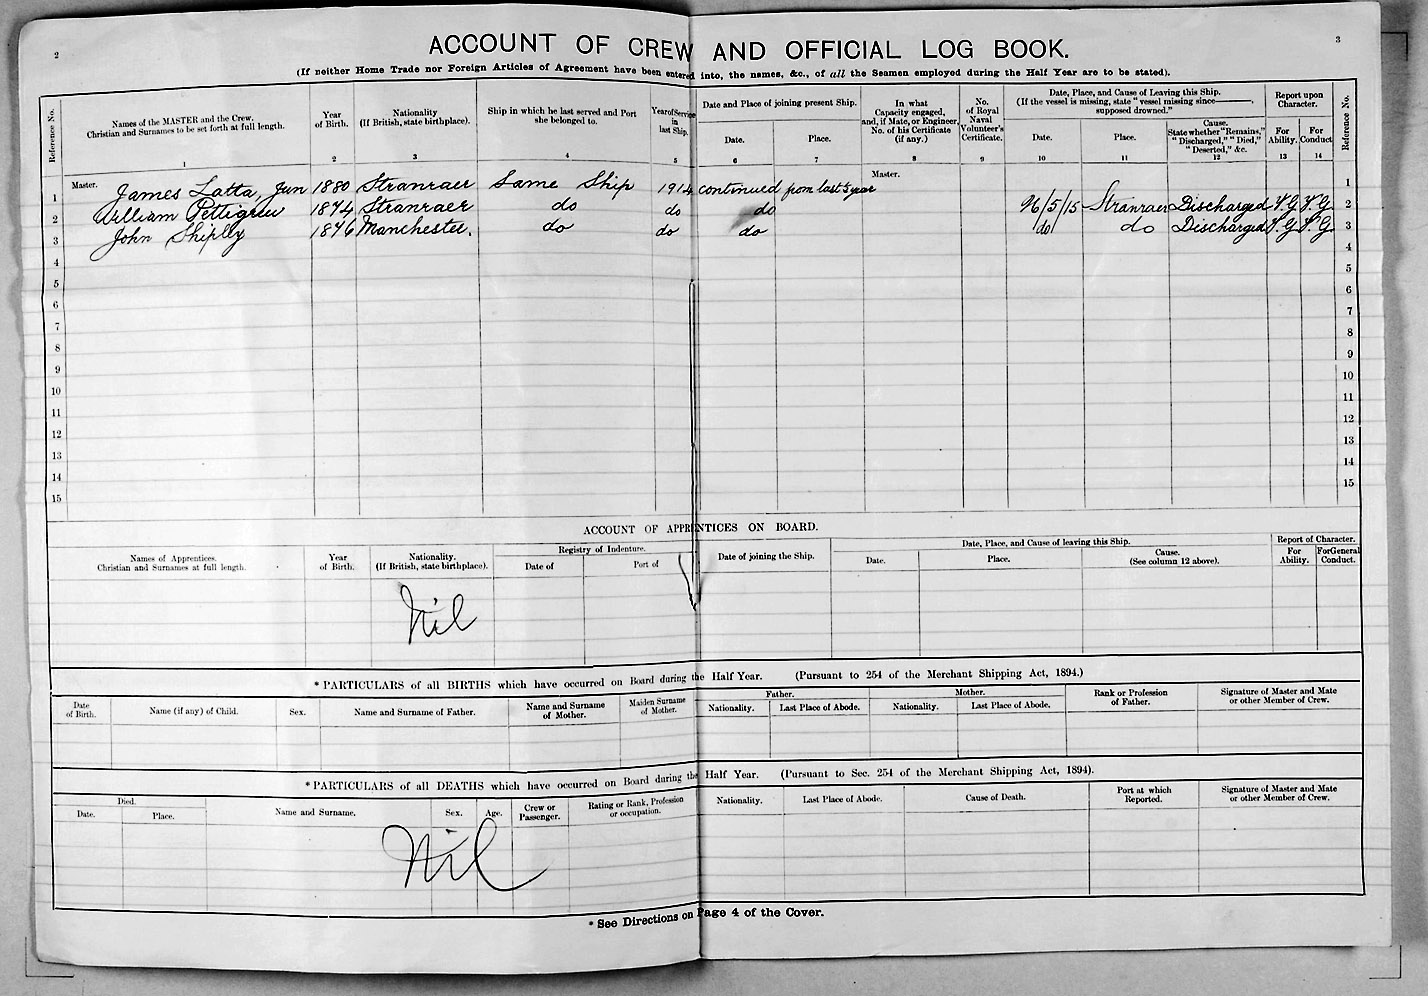 2
3
ACCOUNT OF CREW AND OFFICIAL LOG BOOK.
(If neither Home Trade nor Foreign Articles of Agreement have been entered into, the names, &c., of all the Seamen employed during the Half Year are to be stated).
Reference No.
Names of the MASTER and the Crew.
Christian and Surnames to be set forth at full length.
Year
of Birth.
Nationality
(If British, state birthplace).
Ship in which he last served and Port
she belonged to.
Year of Service
in
last Ship.
Date and Place of joining present Ship.
Date.
Place.
In what
Capacity engaged,
and, if Mate, or Engineer,
No. of his Certificate
(if any.)
No.
of Royal
Naval
Volunteer's
Certificate.
Date, Place, and Cause of Leaving this Ship.
(If the vessel is missing, state "vessel missing since———,
supposed drowned."
Date.
Place.
Cause.
State whether "Remains,"
"Discharged," "Died,"
"Deserted," &c.
Report upon
Character.
For
Ability.
For
Conduct
Reference No.
1 2 3 4 5 6 7 8 9 10 11 12 13 14
1 Master. James Latta, Jun 1880 Stranraer Same Ship 1914 continued from last ½ year Master. 1
2 William Pettigrew 1874 Stranraer do do do 26/5/15 Stranraer Discharged V.G V.G. 2
3 John Shipley 1876 Manchester. do do do do do Discharged V.G V.G. 3
4 4
5 5
6 6
7 7
8 8
9 9
10 10
11 11
12 12
13 13
14 14
15 15
ACCOUNT OF APPRENTICES ON BOARD.
Names of Apprentices.
Christian and Surnames at full length.
Year
of Birth.
Nationality.
(If British, state birthplace).
Registry of Indenture.
Date of
Port of
Date of joining the Ship.
Date, Place, and Cause of leaving this Ship.
Date.
Place.
Cause.
(See column 12 above).
Report of Character.
For
Ability.
For General
Conduct.
Nil
* PARTICULARS of all BIRTHS which have occurred on Board during the Half Year. (Pursuant to 254 of the Merchant Shipping Act, 1894.)
Date
of Birth.
Name (if any) of Child.
Sex.
Name and Surname of Father.
Name and Surname
of Mother.
Maiden Surname
of Mother.
Father.
Nationality.
Last Place of Abode.
Mother.
Nationality.
Last Place of Abode.
Rank or Profession
of Father.
Signature of Master and Mate
or other Member of Crew.
* PARTICULARS of all DEATHS which have occurred on Board during the Half Year. (Pursuant to Sec. 254 of the Merchant Shipping Act, 1894).
Died.
Date.
Place.
Name and Surname.
Sex.
Age.
Crew or
Passenger.
Rating or Rank, Profession
or occupation.
Nationality.
Last Place of Abode.
Cause of Death.
Port at which
Reported.
Signature of Master and Mate
or other Member of Crew.
Nil
* See Directions on Page 4 of the Cover.